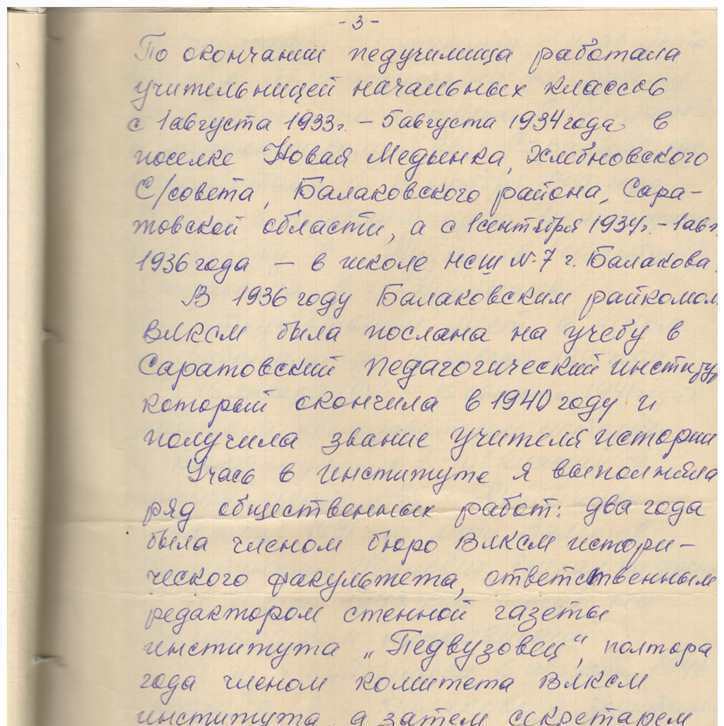 -3-
По окончании педучилища работала
учительницей начальных классов
с 1 августа 1933г. – 5 августа 1934 года в
поселке Новая Медынка, Хлебновского
С/совета, Балаковского района, Сара-
товской области, а с 1 сентября 1934г. – 1 авг.
1936 года — в школе НСШ № 7 г. Балакова.
В 1936 году Балаковским райкомом
ВЛКСМ была послана на учебу в
Саратовский педагогический институт
который окончила в 1940 году и
получила звание учителя истории
Учась в институте я выполняла
ряд общественных работ: два года
была членом бюро ВЛКСМ истори-
ческого факультета, ответственным
редактором стенной газеты
института „Педвузовец", полтора
года членом комитета ВЛКСМ
института, а затем секретарем